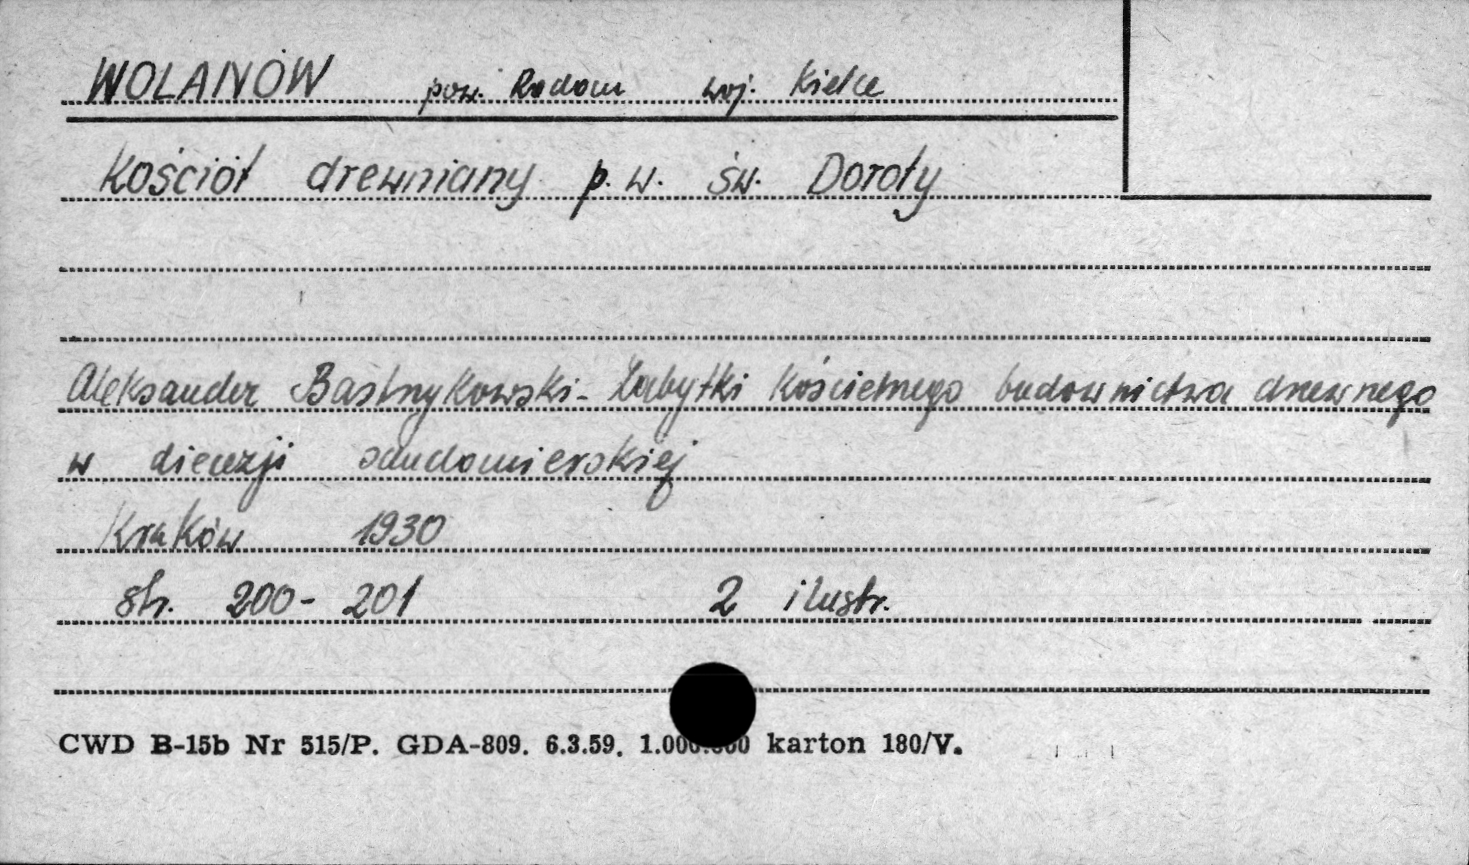 WOLANÓW pow. Radom woj. Kielce
Kościół drewniany p.w. św. Doroty
Aleksander Bastrzykowski - Zabytki kościelnego budownictwa drewnego
w diecezji sandomierskiej
Kraków 1930
str. 200-201 2 ilustr.
CWD B-15b Nr 515/P. GDA-809. 6.3.59. 1.000.000 karton 180/V.